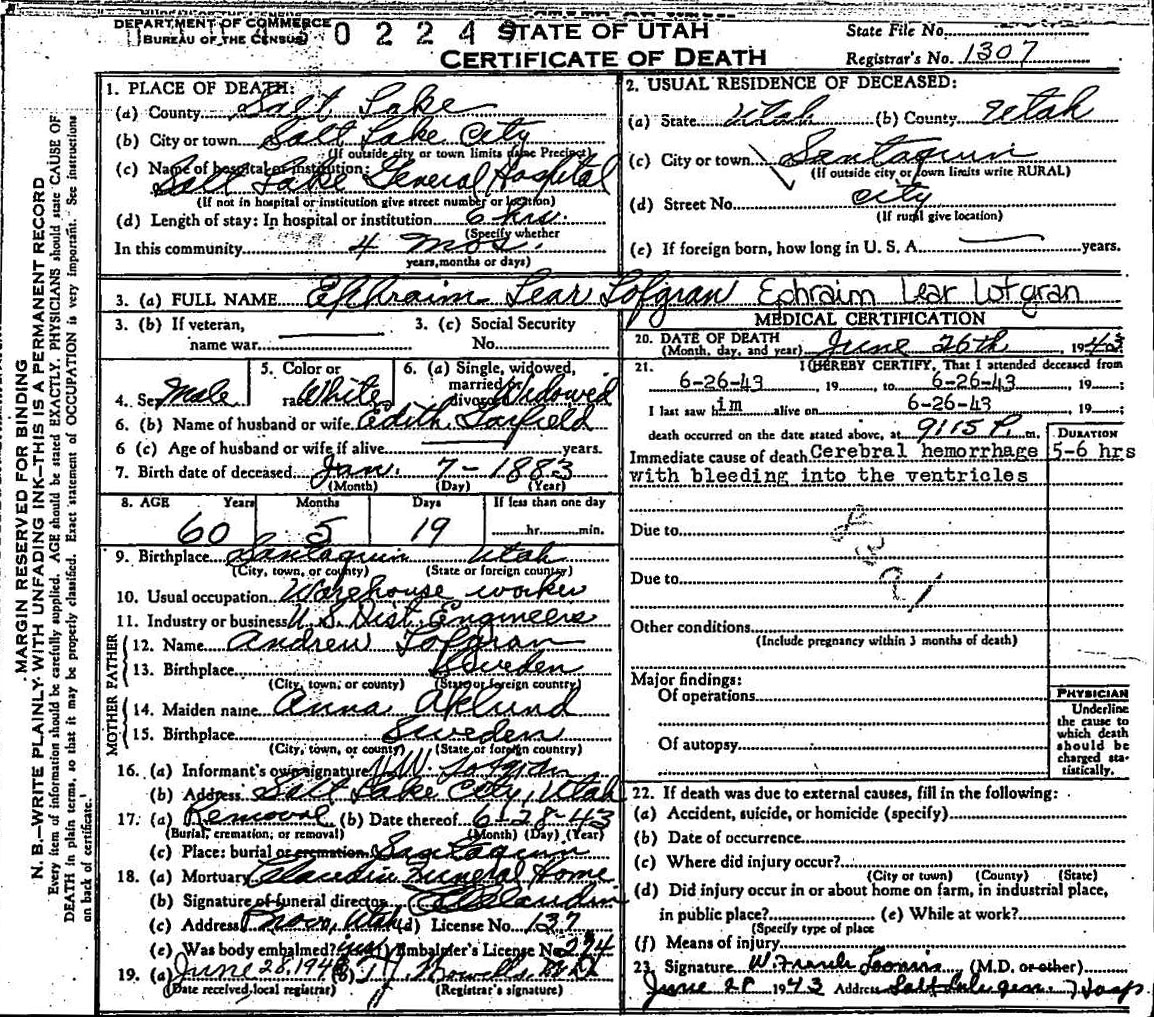 DEPARTMENT OF COMMERCE
BUREAU OF THE CENSUS
0 2 2 4 9
STATE OF UTAH
CERTIFICATE OF DEATH
State File No.
Registrar's No. 1307
1. PLACE OF DEATH:
(a) County Salt Lake
(b) City or town Salt Lake City
(If outside city or town limits name Precinct)
(c) Name of hospital or institution:
Salt Lake General Hospital
(If not in hospital or institution give street number or location)
(d) Length of stay: In hospital or institution 6 hrs.
(Specify whether
In this community 4 mos.
years, months or days)
2. USUAL RESIDENCE OF DECEASED:
(a) State Utah (b) County Utah
(c) City or town Santaquin
(If outside city or town limits write RURAL)
(d) Street No. city
(If rural give location)
(e) If foreign born, how long in U. S. A. years.
3. (a) FULL NAME Ephraim Lear Lofgran Ephraim Lear Lofgran
3. (b) If veteran,
name war
3. (c) Social Security
No.
4. Sex Male
5. Color or
race White
6. (a) Single, widowed,
married or
divorced Widowed
6. (b) Name of husband or wife Edith Garfield
6 (c) Age of husband or wife if alive years.
7. Birth date of deceased Jan. 7 - 1883
(Month) (Day) (Year)
8. AGE Years Months Days If less than one day
60 5 19 hr. min.
9. Birthplace Santaquin Utah
(City, town, or county) (State or foreign country)
10. Usual occupation Warehouse worker
11. Industry or business U.S. Dist. Engineers
FATHER
12. Name Andrew Lofgran
13. Birthplace Sweden
(City, town, or county) (State or foreign country)
MOTHER
14. Maiden name Anna Aklund
15. Birthplace Sweden
(City, town, or county) (State or foreign country)
16. (a) Informant's own signature Lofgran
(b) Address Salt Lake City, Utah
17. (a) Removal (b) Date thereof 6-28-43
(Burial, cremation, or removal) (Month) (Day) (Year)
(c) Place: burial or cremation Santaquin
18. (a) Mortuary Claudin Funeral Home
(b) Signature of funeral director Claudin
(c) Address Provo, Utah (d) License No. 137
(e) Was body embalmed? yes Embalmer's License No. 294
19. (a) June 28, 1943 (b)
(Date received local registrar) (Registrar's signature)
MEDICAL CERTIFICATION
20. DATE OF DEATH
(Month, day, and year) June 26th 1943
21. I HEREBY CERTIFY, That I attended deceased from
6-26-43 19 to 6-26-43 19 ;
I last saw him alive on 6-26-43 19 ;
death occurred on the date stated above, at 9:15 P. m.
DURATION
Immediate cause of death Cerebral hemorrhage 5-6 hrs
with bleeding into the ventricles
Due to
Due to
Other conditions
(Include pregnancy within 3 months of death)
Major findings:
Of operations
Of autopsy
PHYSICIAN
Underline
the cause to
which death
should be
charged sta-
tistically.
22. If death was due to external causes, fill in the following:
(a) Accident, suicide, or homicide (specify)
(b) Date of occurrence
(c) Where did injury occur?
(City or town) (County) (State)
(d) Did injury occur in or about home on farm, in industrial place,
in public place? (e) While at work?
(Specify type of place
(f) Means of injury
23. Signature W. (M.D. or other)
June 28 1943 Address Salt Lake Gen. Hosp
MARGIN RESERVED FOR BINDING
N. B.—WRITE PLAINLY, WITH UNFADING INK—THIS IS A PERMANENT RECORD
Every item of information should be carefully supplied. AGE should be stated EXACTLY. PHYSICIANS should state CAUSE OF
DEATH in plain terms, so that it may be properly classified. Exact statement of OCCUPATION is very important. See instructions
on back of certificate.